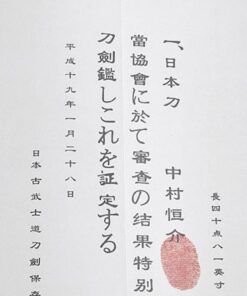 一、日本刀　中村恒介
長四十点八一英寸
當協會に於て審査の结果特别
刀劍鑑しこれを証定する
平成十九年一月二十八日
日本古武士道刀劍保存